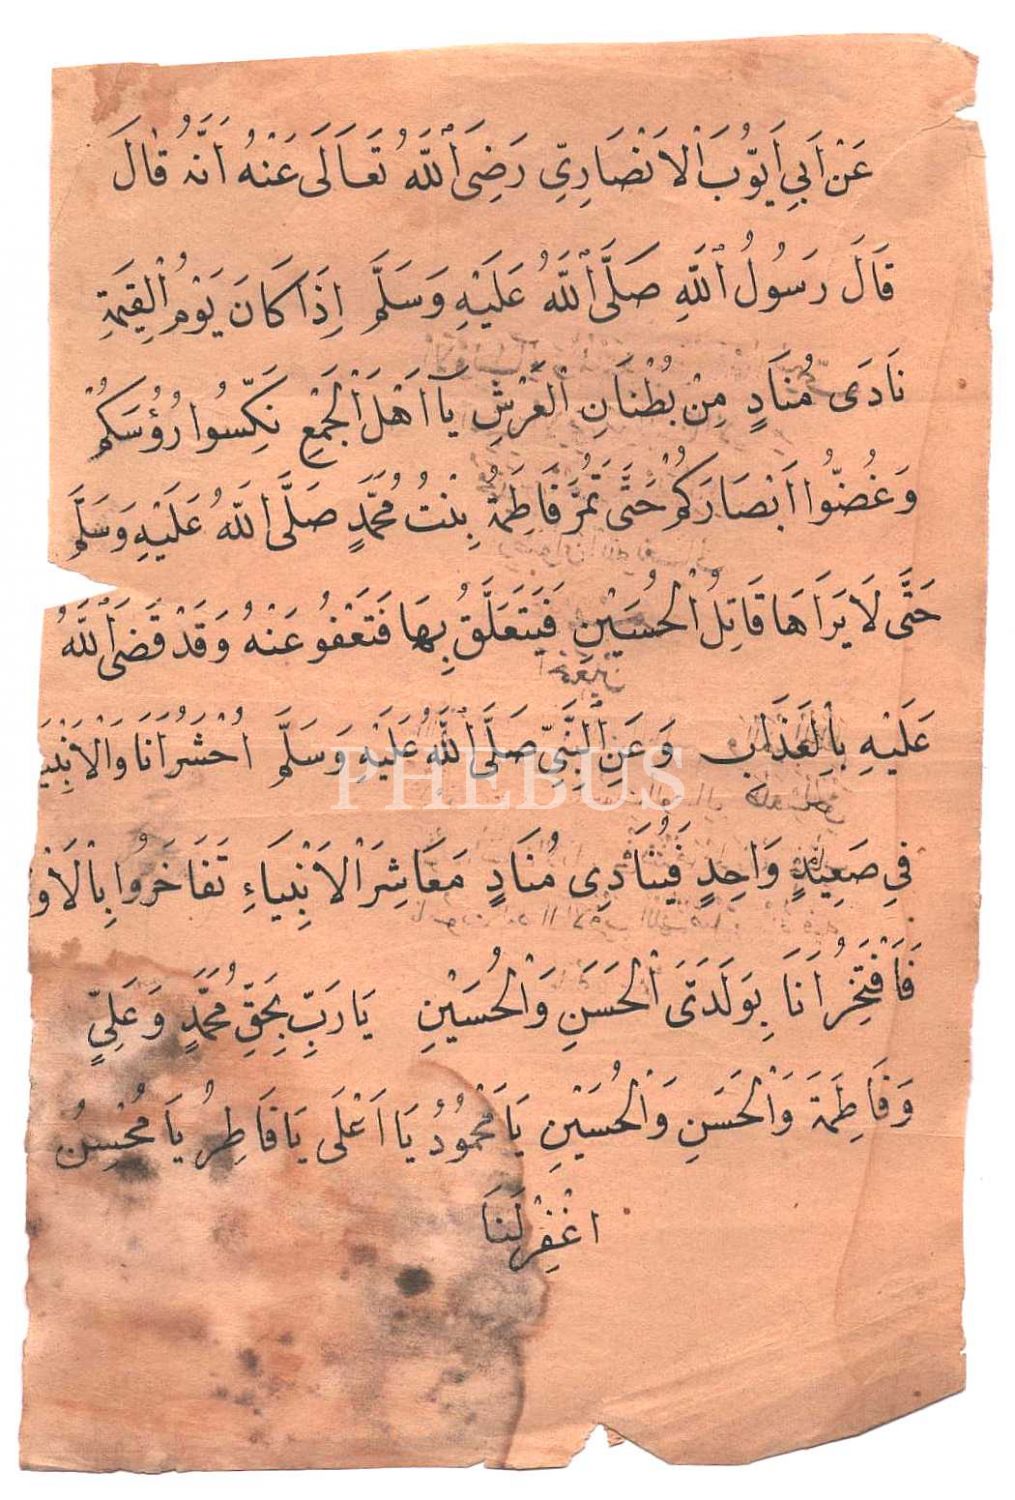 عَنْ اَبِي اَيُّوبَ الْاَنْصَارِيِّ رَضِىَ اللّٰهُ تَعَالَى عَنْهُ اَنَّهُ قَالَ
قَالَ رَسُولُ اللّٰهِ صَلَّى اللّٰهُ عَلَيْهِ وَسَلَّمَ اِذَا كَانَ يَوْمُ الْقِيٰمَةِ
نَادَى مُنَادٍ مِنْ بُطْنَانِ الْعَرْشِ يَا اَهْلَ الْجَمْعِ نَكِّسُوا رُؤُسَكُمْ
وَغُضُّوا اَبْصَارَكُمْ حَتَّى تَمُرَّ فَاطِمَةُ بِنْتُ مُحَمَّدٍ صَلَّى اللّٰهُ عَلَيْهِ وَسَلَّمَ
حَتَّى لَا يَرَاهَا قَاتِلُ الْحُسَيْنِ فَيَتَعَلَّقُ بِهَا فَتَعْفُو عَنْهُ وَقَدْ قَضَى اللّٰهُ
عَلَيْهِ بِالْعَذَابِ وَعَنِ النَّبِيِّ صَلَّى اللّٰهُ عَلَيْهِ وَسَلَّمَ اُحْشَرُ اَنَا وَالْاَنْبِيَا
PHEBUS
فِي صَعِيدٍ وَاحِدٍ فَيُنَادِى مُنَادٍ مَعَاشِرَ الْاَنْبِيَاءِ تَفَاخَرُوا بِالْاَوْ
فَاَفْتَخِرُ اَنَا بِوَلَدَىَّ الْحَسَنِ وَالْحُسَيْنِ يَا رَبِّ بِحَقِّ مُحَمَّدٍ وَعَلِيٍّ
وَفَاطِمَةَ وَالْحَسَنِ وَالْحُسَيْنِ يَا مَحْمُودُ يَا اَعْلَى يَا فَاطِرُ يَا مُحْسِنُ
اغْفِرْلَنَا